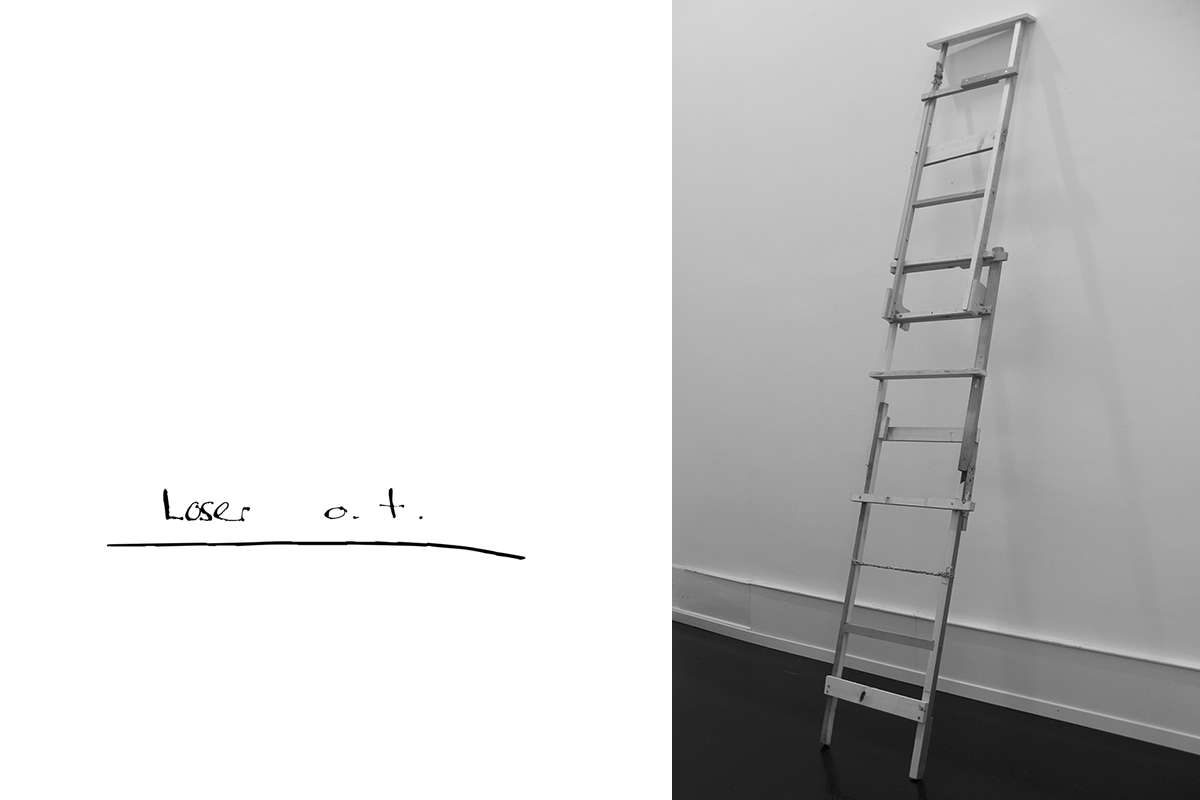 Loser o. t.